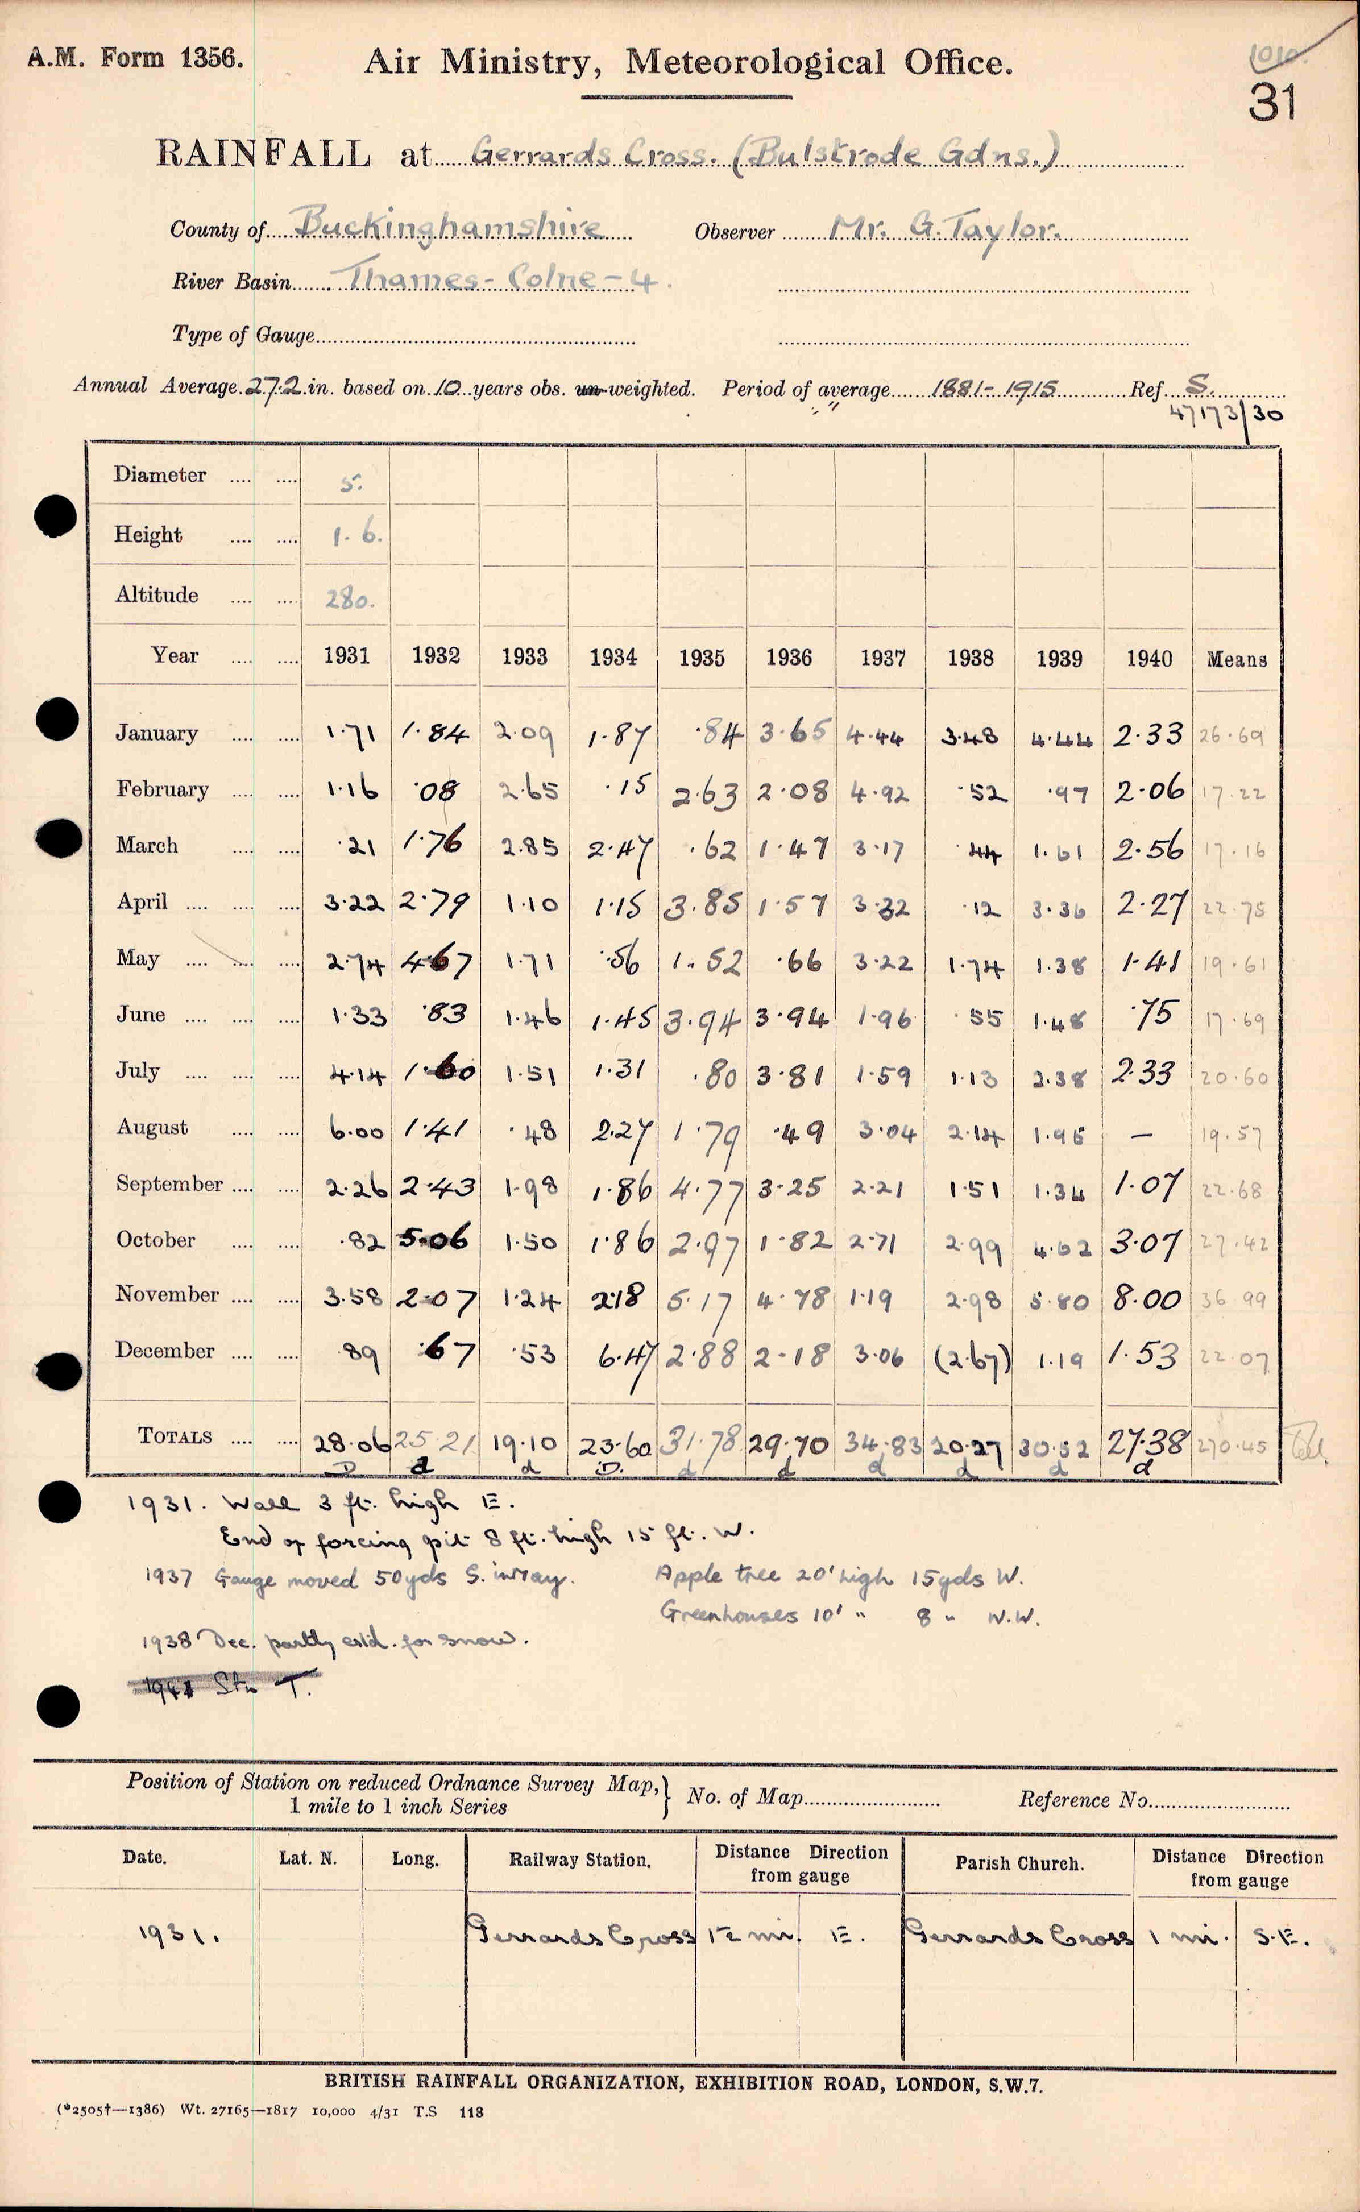 A.M. Form 1356.
Air Ministry, Meteorological Office.
31
RAINFALL at Gerrards Cross. (Bulstrode Gdns.)
County of Buckinghamshire Observer Mr. G. Taylor.
River Basin Thames - Colne - 4.
Type of Gauge
Annual Average 27.2 in. based on 10 years obs. un-weighted. Period of average 1881-1915 Ref. S.
47173/30
Diameter .... .... 5.
Height .... .... 1.6.
Altitude .... .... 280.
Year .... .... 1931 1932 1933 1934 1935 1936 1937 1938 1939 1940 Means
January .... .... 1.71 1.84 2.09 1.87 .84 3.65 4.44 3.48 4.44 2.33 26.69
February .... .... 1.16 .08 2.65 .15 2.63 2.08 4.92 .52 .97 2.06 17.22
March .... .... .21 1.76 2.85 2.47 .62 1.47 3.17 .44 1.61 2.56 17.16
April .... .... .... 3.22 2.79 1.10 1.15 3.85 1.57 3.32 .12 3.36 2.27 22.75
May .... .... .... 2.74 4.67 1.71 .56 1.52 .66 3.22 1.74 1.38 1.41 19.61
June .... .... .... 1.33 .83 1.46 1.45 3.94 3.94 1.96 .55 1.48 .75 17.69
July .... .... .... 4.14 1.60 1.51 1.31 .80 3.81 1.59 1.13 2.38 2.33 20.60
August .... .... 6.00 1.41 .48 2.27 1.79 .49 3.04 2.14 1.95 — 19.57
September .... .... 2.26 2.43 1.98 1.86 4.77 3.25 2.21 1.51 1.34 1.07 22.68
October .... .... .82 5.06 1.50 1.86 2.97 1.82 2.71 2.99 4.62 3.07 27.42
November .... .... 3.58 2.07 1.24 2.18 5.17 4.78 1.19 2.98 5.80 8.00 36.99
December .... .... .89 .67 .53 6.47 2.88 2.18 3.06 (2.67) 1.19 1.53 22.07
TOTALS .... .... 28.06 25.21 19.10 23.60 31.78 29.70 34.83 20.27 30.52 27.38 270.45
D d d D. d d d d d d
1931. Wall 3 ft. high E.
End of forcing pit 8 ft. high 15 ft. W.
1937 Gauge moved 50yds S. in May. Apple tree 20' high 15yds W.
Greenhouses 10' " 8 " N.W.
1938 Dec. partly estd. for snow.
1941 Stn T.
Position of Station on reduced Ordnance Survey Map, 1 mile to 1 inch Series } No. of Map Reference No.
Date. Lat. N. Long. Railway Station. Distance Direction from gauge Parish Church. Distance Direction from gauge
1931. Gerrards Cross 1½ mi. E. Gerrards Cross 1 mi. S.E.
BRITISH RAINFALL ORGANIZATION, EXHIBITION ROAD, LONDON, S.W.7.
(*2505†—1386) Wt. 27165—1817 10,000 4/31 T.S 118